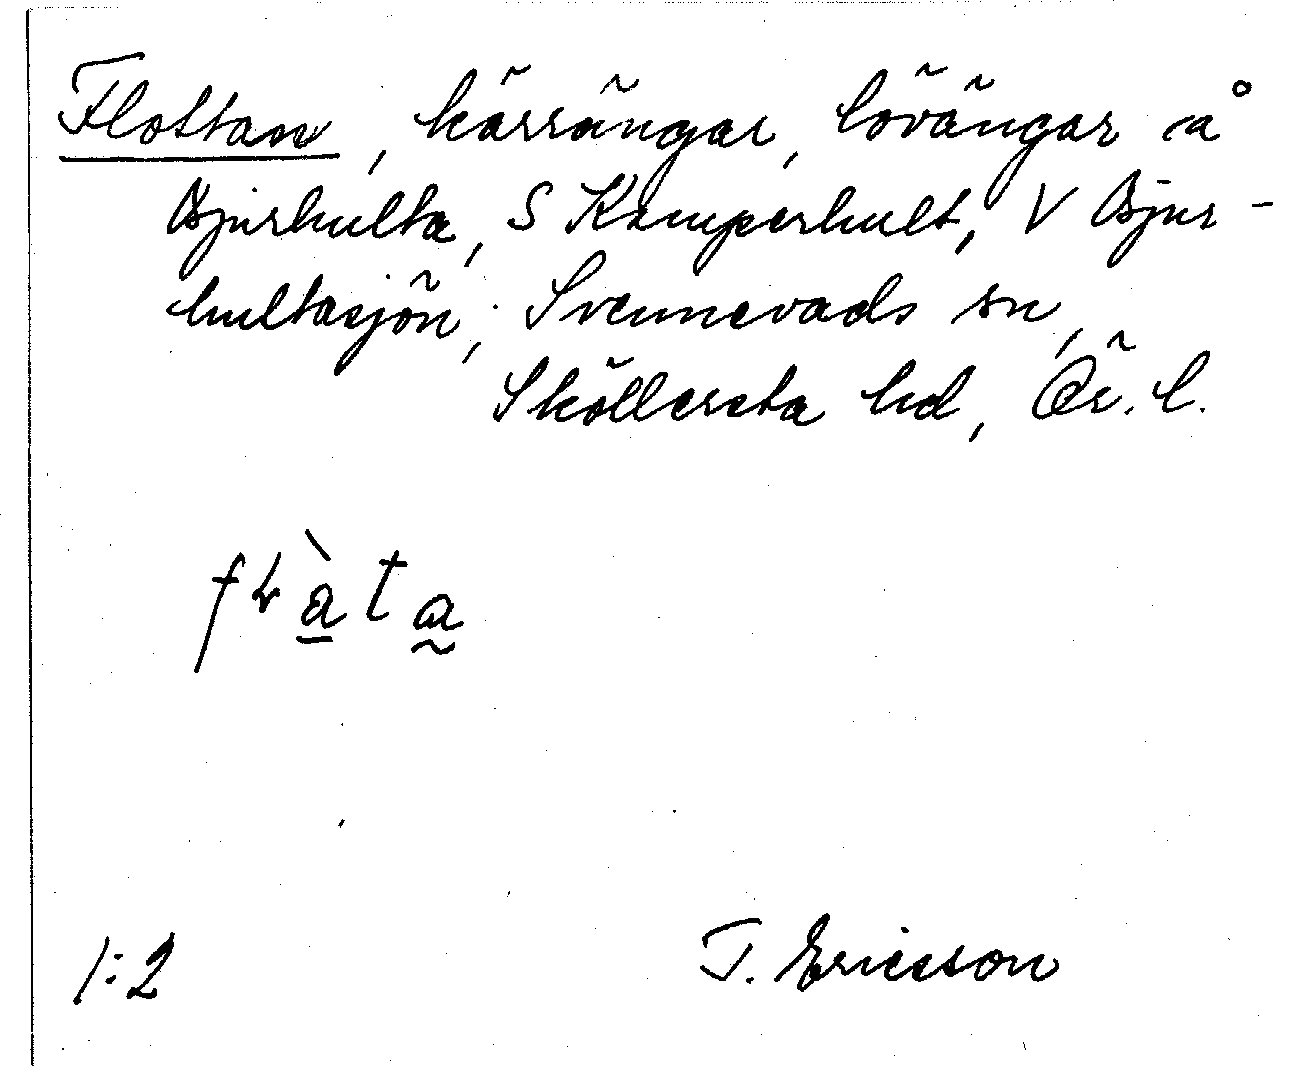 Flottan, kärrängar, lövängar å
Bjurhulta, S Kamperhult, V Bjur-
hultasjön, Svennevads sn,
Sköllersta hd, Ör. l.
1:2
T. Ericsson